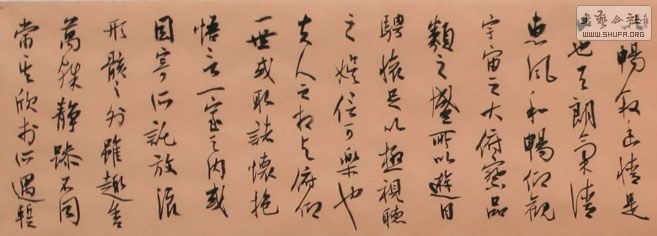 暢叙幽情是
也天朗氣清
惠風和暢仰觀
宇宙之大俯察品
類之盛所以遊目
騁懷足以極視聽
之娛信可樂也
夫人之相与俯仰
一世或取諸懷抱
悟言一室之内或
因寄所託放浪
形骸之外雖趣舍
萬殊靜躁不同
當其欣於所遇暫
書藝公社
WWW.SHUFA.ORG